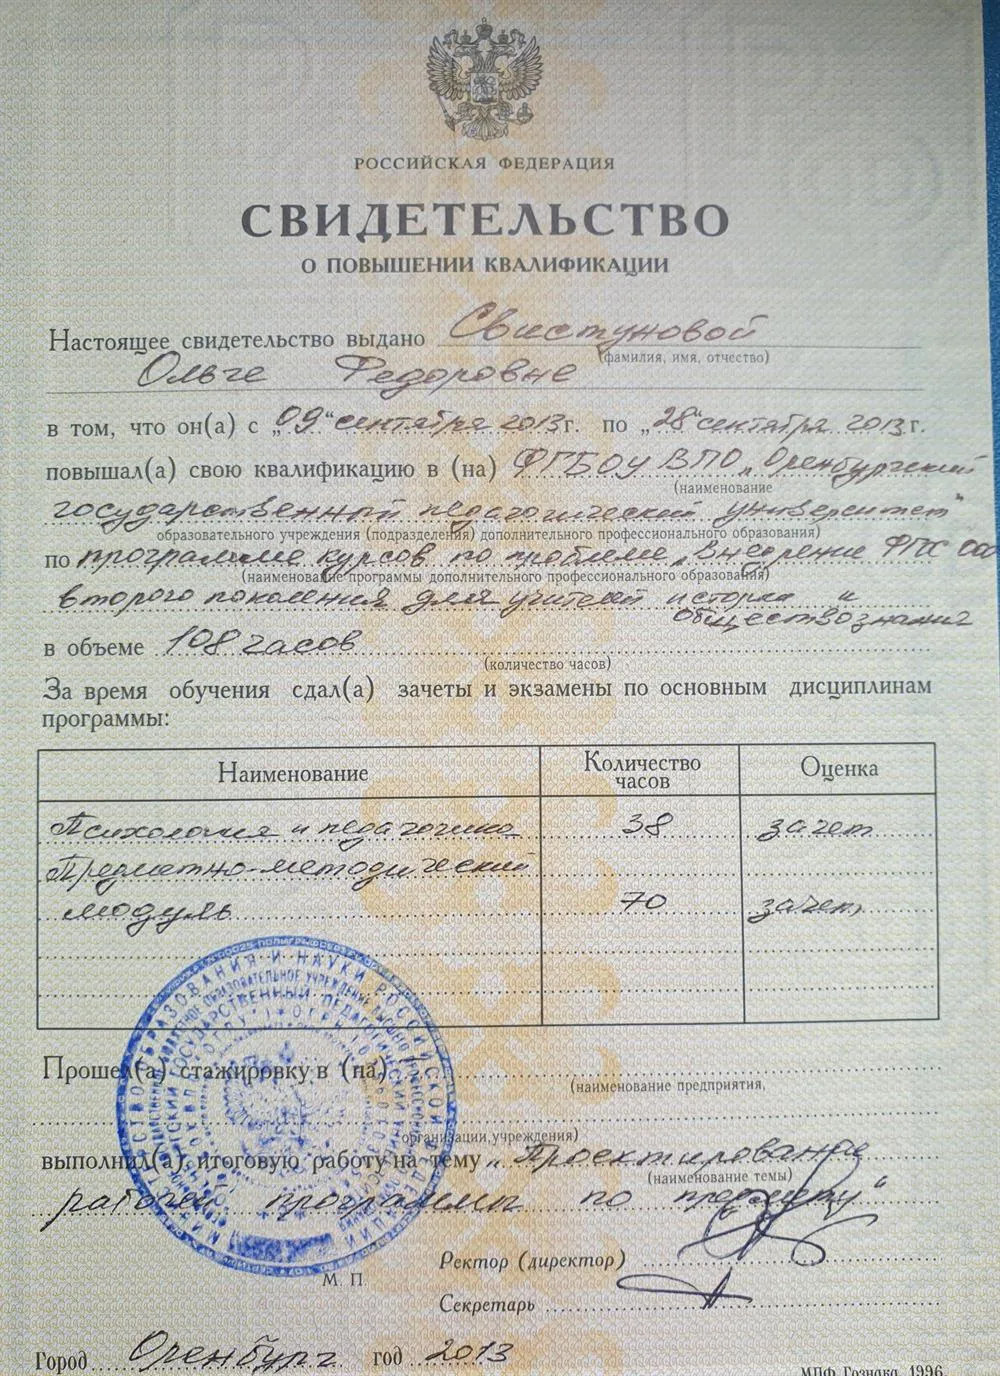 РОССИЙСКАЯ ФЕДЕРАЦИЯ
СВИДЕТЕЛЬСТВО
О ПОВЫШЕНИИ КВАЛИФИКАЦИИ
Настоящее свидетельство выдано Свистуновой
(фамилия, имя, отчество)
Ольге Федоровне
в том, что он(а) с „09" сентября 2013г. по „28" сентября 2013г.
повышал(а) свою квалификацию в (на) ФГБОУ ВПО „Оренбургский
(наименование
государственный педагогический университет"
образовательного учреждения (подразделения) дополнительного профессионального образования)
по программе курсов по проблеме „Внедрение ФГОС ООО
(наименование программы дополнительного профессионального образования)
второго поколения для учителей истории и
обществознания
в объеме 108 часов
(количество часов)
За время обучения сдал(а) зачеты и экзамены по основным дисциплинам
программы:
Наименование Количество часов Оценка
Психология и педагогика 38 зачет
Предметно-методический
модуль 70 зачет
Прошел(а) стажировку в (на)
(наименование предприятия,
организации, учреждения)
выполнил(а) итоговую работу на тему „Проектирование
(наименование темы)
рабочей программы по предмету"
Ректор (директор)
М. П.
Секретарь
Город Оренбург год 2013
МПФ Гознака. 1996.